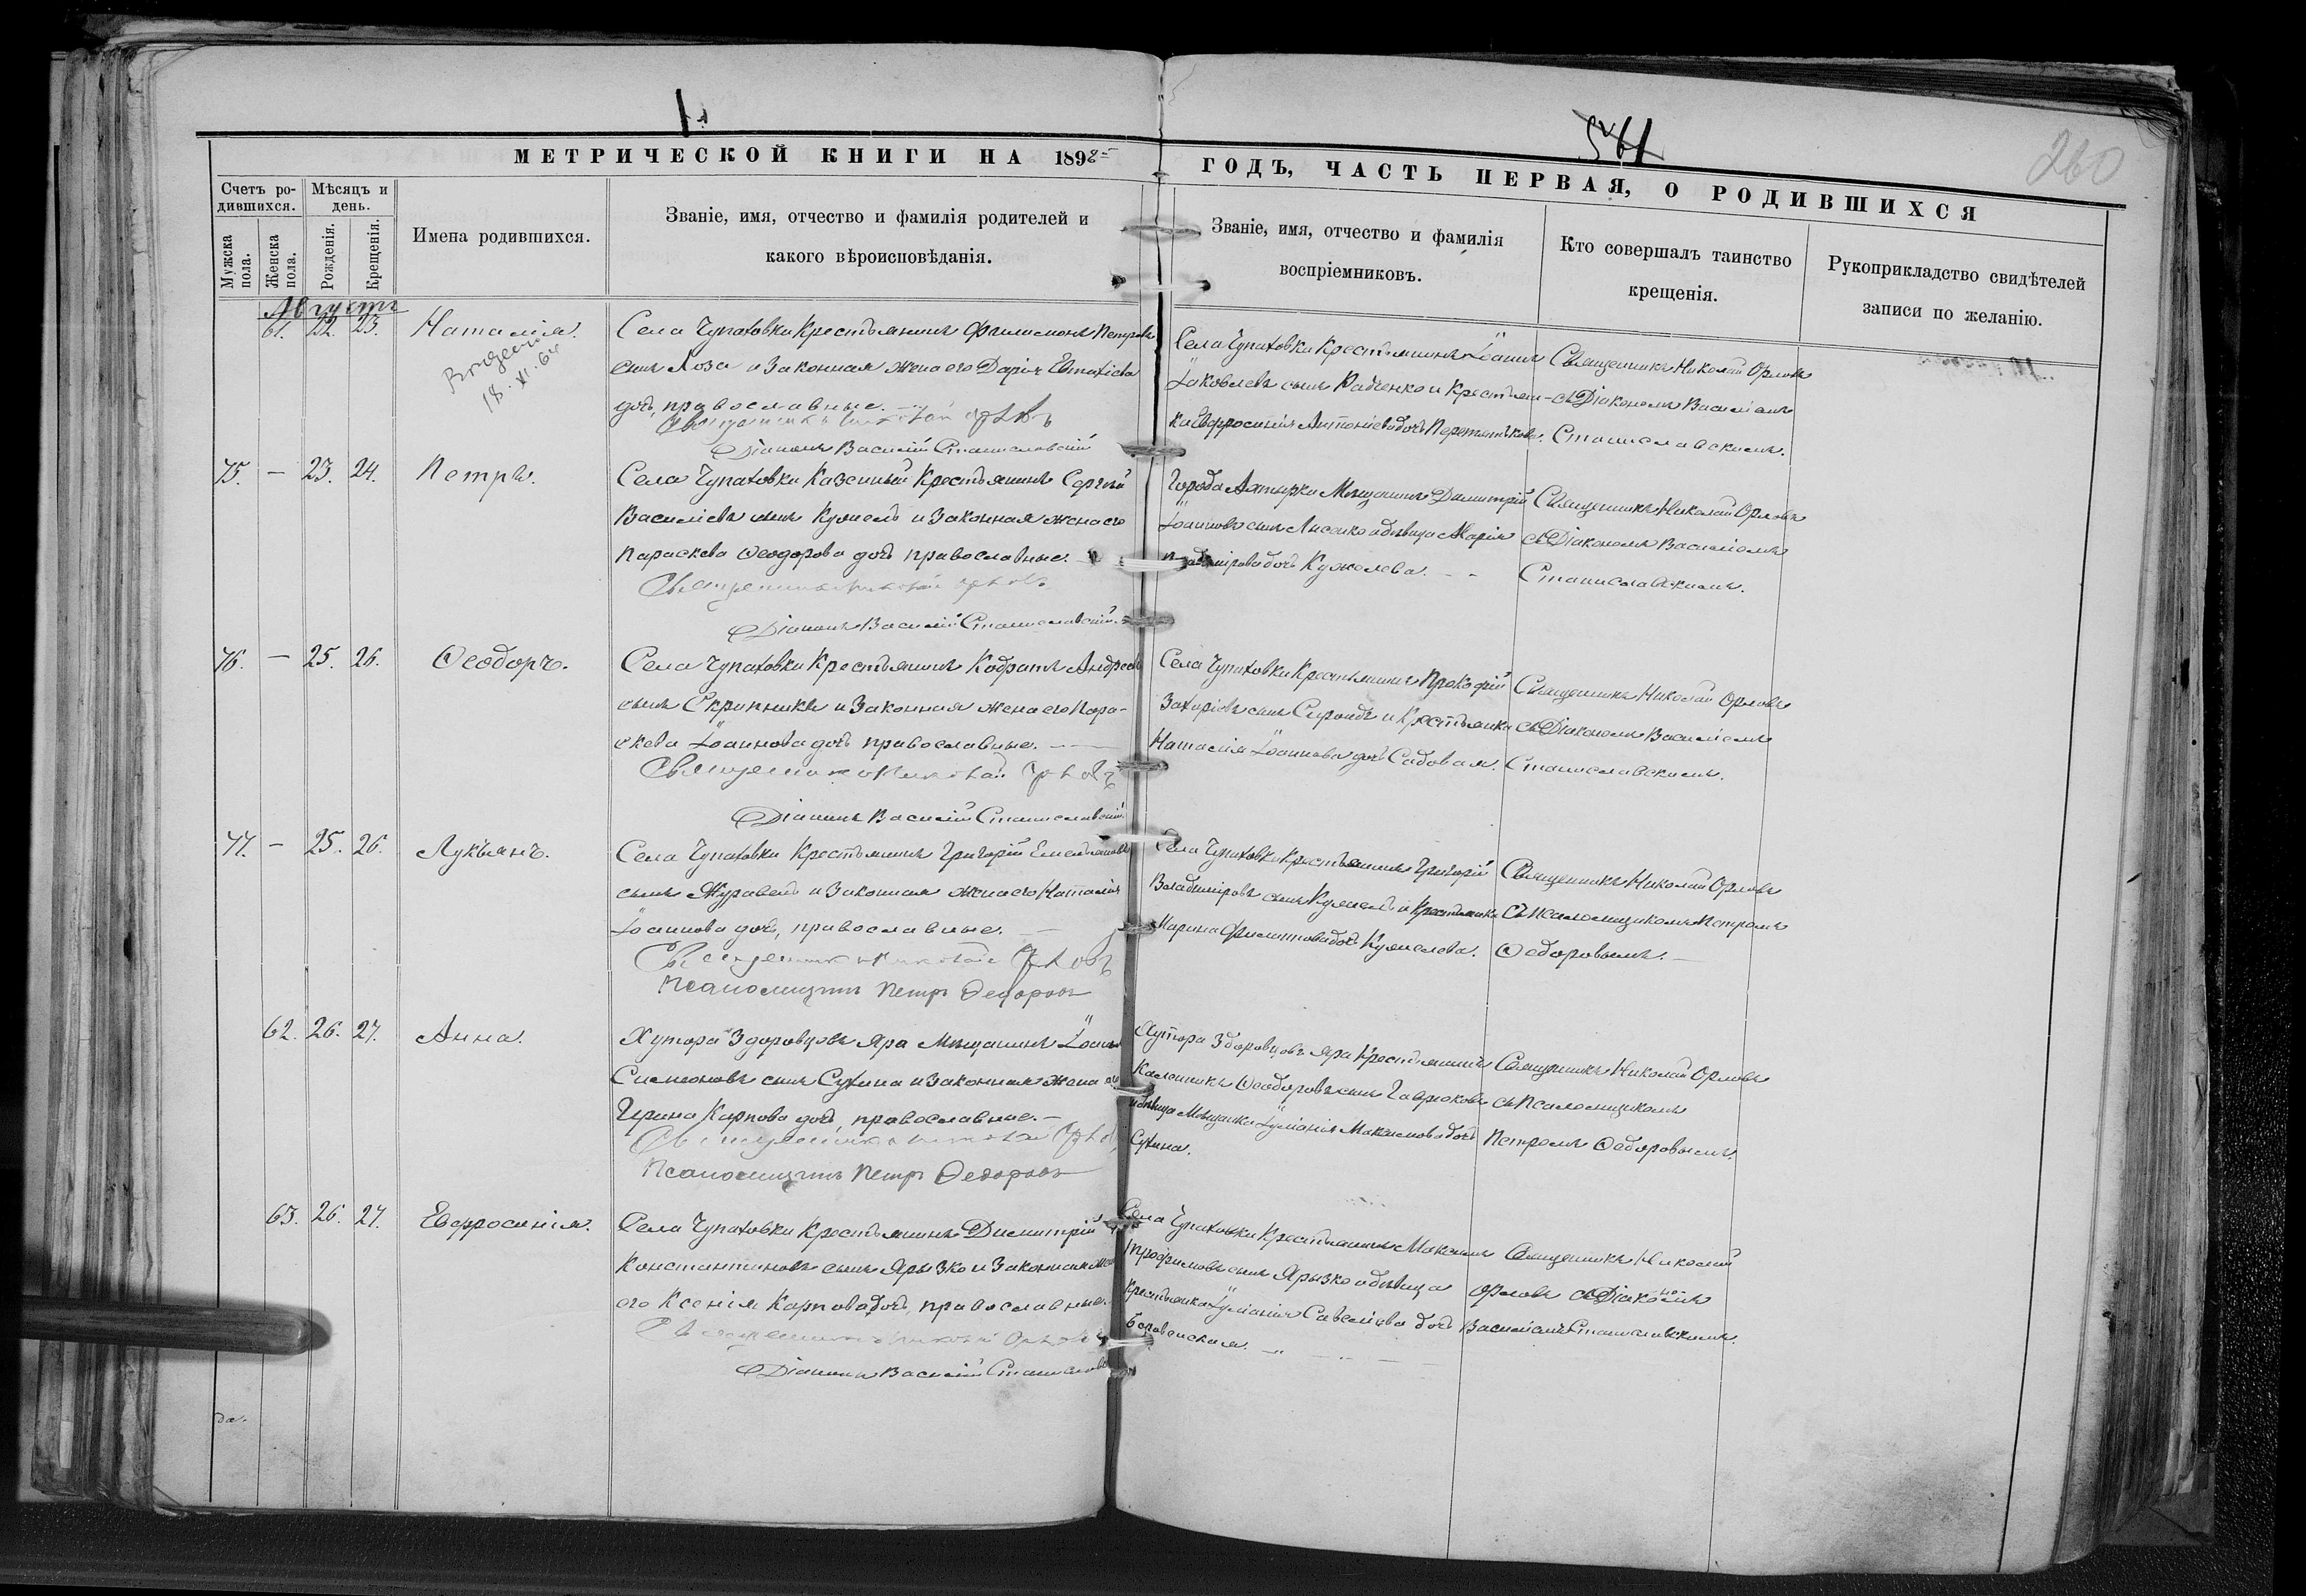 1.
541
260
МЕТРИЧЕСКОЙ КНИГИ НА 1898
ГОДЪ, ЧАСТЬ ПЕРВАЯ, О РОДИВШИХСЯ
Счетъ ро-
дившихся.
Мѣсяцъ и
день.
Мужска
пола.
Женска
пола.
Рожденія.
Крещенія.
Имена родившихся.
Званіе, имя, отчество и фамилія родителей и
какого вѣроисповѣданія.
Званіе, имя, отчество и фамилія
воспріемниковъ.
Кто совершалъ таинство
крещенія.
Рукоприкладство свидѣтелей
записи по желанію.
Августъ
61. 22. 23. Наталія.
18. XI. 64
Села Чупаховки Крестьянинъ Филимонъ Петровъ
сынъ Лоза и законная жена его Дарія Евтихіева
дочь, православные.
Священникъ Николай Орловъ
Діаконъ Василій Станиславскій
Села Чупаховки Крестьянинъ Іоаннъ
Іаковлевъ сынъ Радченко и Крестьян-
ка Евфросинія Антоніева дочь
Священникъ Николай Орловъ
съ Діакономъ Василіемъ
Станиславскимъ.
75. — 23. 24. Петръ.
Села Чупаховки Казенный Крестьянинъ Сергій
Василіевъ сынъ Кужель и законная жена его
Параскева Ѳеодорова дочь православные.
Священникъ Николай Орловъ
Діаконъ Василій Станиславскій.
Города Ахтырки Мѣщанинъ Димитрій
Іоанновъ сынъ Лисенко и дѣвица Марія
дочь Кужелева.
Священникъ Николай Орловъ
съ Діакономъ Василіемъ
Станиславскимъ.
76. — 25. 26. Ѳеодоръ.
Села Чупаховки Крестьянинъ Кодратъ Андреевъ
сынъ Скрипникъ и законная жена его Пара-
скева Іоаннова дочь православные.
Священникъ Николай Орловъ
Діаконъ Василій Станиславскій
Села Чупаховки Крестьянинъ Прокофій
Захаріевъ сынъ и Крестьянка
Наталія Іоаннова дочь Садовая.
Священникъ Николай Орловъ
съ Діакономъ Василіемъ
Станиславскимъ.
77. — 25. 26. Лукіянъ.
Села Чупаховки Крестьянинъ Григорій Емельяновъ
сынъ Журавель и законная жена его Наталія
Іоаннова дочь, православные.
Священникъ Николай Орловъ
Псаломщикъ Петръ Ѳедоровъ
Села Чупаховки Крестьянинъ Григорій
Владиміровъ сынъ Кужель и Крестьянка
Марина Филиппова дочь Кужелева.
Священникъ Николай Орловъ
съ Псаломщикомъ Петромъ
Ѳедоровымъ.
62. 26. 27. Анна.
Хутора Здоровцовъ Яра Мѣщанинъ Іоаннъ
Симеоновъ сынъ Сухина и законная жена его
Ирина Карпова дочь, православные.
Священникъ Николай Орловъ
Псаломщикъ Петръ Ѳедоровъ
Хутора Здоровцовъ Яра Крестьянинъ
Калинникъ Ѳеодоровъ сынъ Гавриковъ
и дѣвица Мѣщанка Іуліанія Максимова дочь
Сухина.
Священникъ Николай Орловъ
съ Псаломщикомъ
Петромъ Ѳедоровымъ.
63. 26. 27. Евфросинія.
Села Чупаховки Крестьянинъ Димитрій
Константиновъ сынъ Ярызко и законная жена
его Ксенія Карпова дочь, православные.
Священникъ Николай Орловъ
Діаконъ Василій
Села Чупаховки Крестьянинъ Максимъ
Трофимовъ сынъ Ярызко и дѣвица
Крестьянка Іуліанія Савеліева дочь
Боровенская.
Священникъ Николай
Орловъ съ Діакономъ
Василіемъ Станиславскимъ.